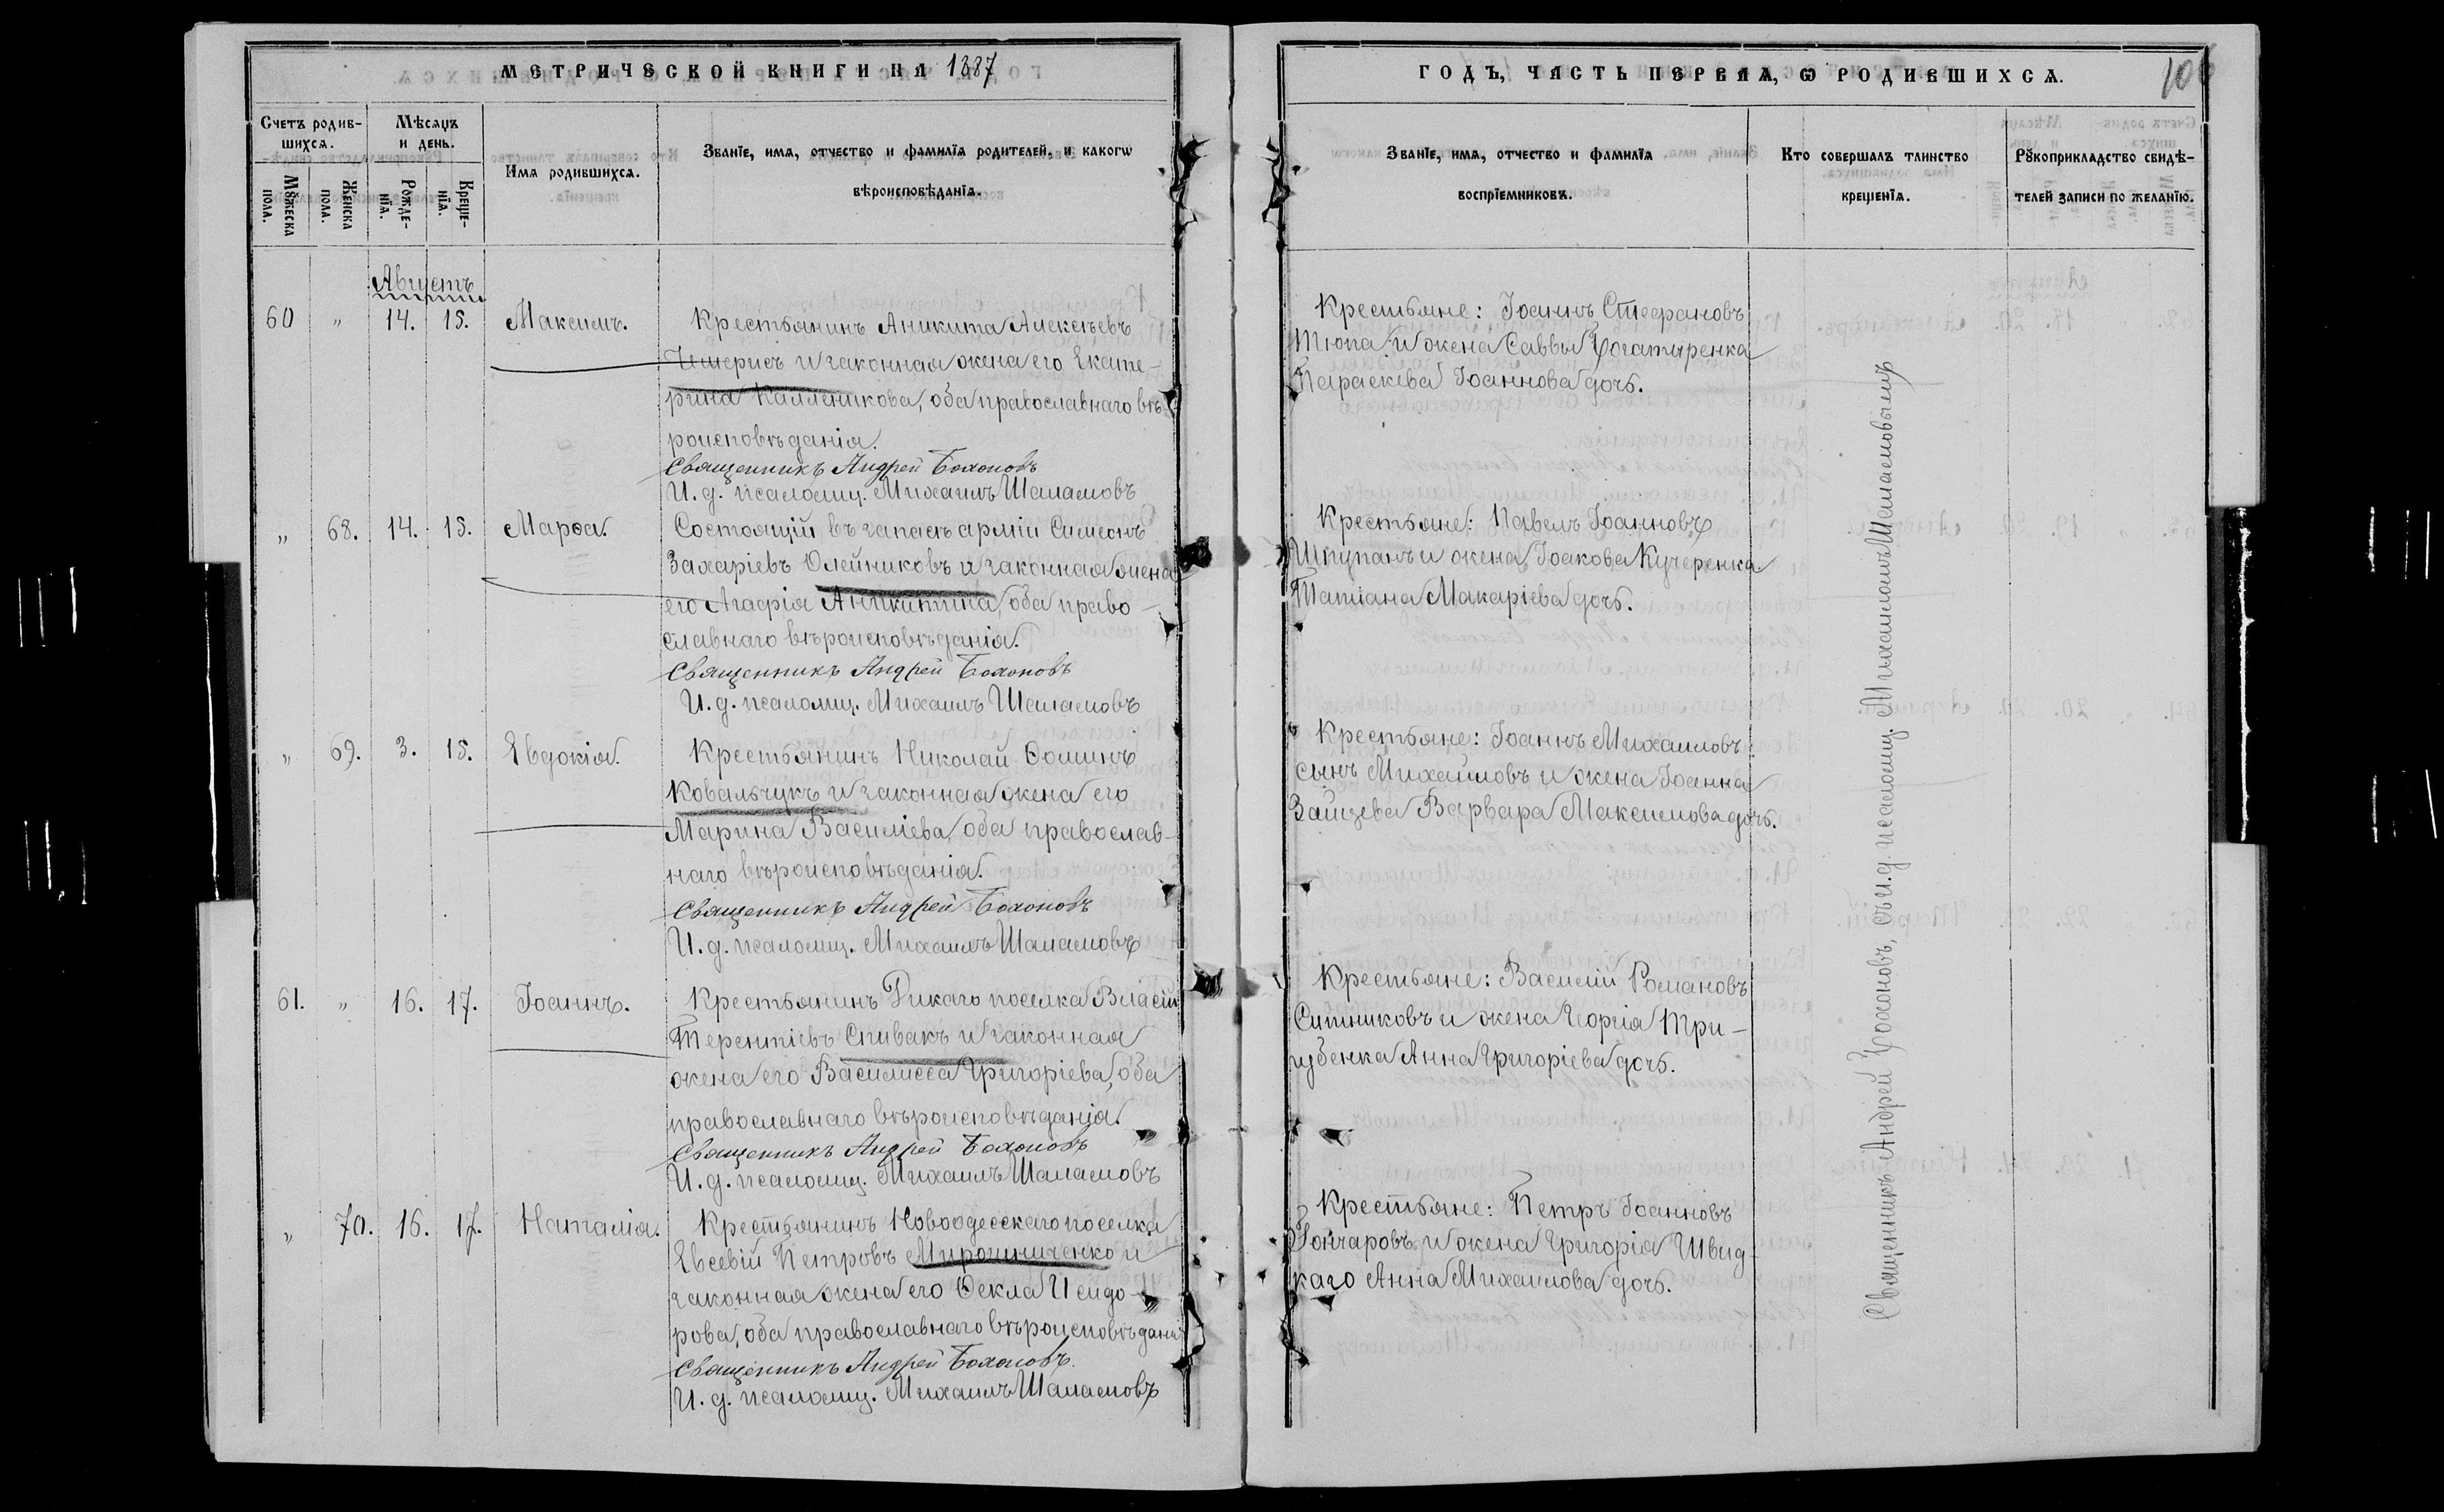 МЕТРИЧЕСКОЙ КНИГИ НА 1887
Счетъ родив-
шихся.
Мѣсяцъ
и день.
Имя родившихся.
Званіе, имя, отчество и фамилія родителей, и какогѡ
вѣроисповѣданія.
Мꙋжеска
пола.
Женска
пола.
Рожде-
нія.
Креще-
нія.
Августъ
60 " 14. 15. Максимъ.
Крестьянинъ Аникита Алексѣевъ
Чемерисъ и законная жена его Екате-
рина Каллиникова, оба православнаго вѣ-
роисповѣданія.
Священникъ Андрей Бохоновъ
И. д. псаломщ. Михаилъ Шаламовъ
" 68. 14. 15. Марѳа.
Состоящій въ запасѣ арміи Симеонъ
Захаріевъ Олейниковъ и законная жена
его Агафія Аникитина, оба право-
славнаго вѣроисповѣданія.
Священникъ Андрей Бохоновъ
И. д. псаломщ. Михаилъ Шаламовъ
" 69. 3. 15. Евдокія.
Крестьянинъ Николай Ѳоминъ
Ковальчукъ и законная жена его
Марина Василіева, оба православ-
наго вѣроисповѣданія.
Священникъ Андрей Бохоновъ
И. д. псаломщ. Михаилъ Шаламовъ
61. " 16. 17. Іоаннъ.
Крестьянинъ Дикаго поселка Власій
Терентіевъ Спивакъ и законная
жена его Василисса Григоріева, оба
православнаго вѣроисповѣданія.
Священникъ Андрей Бохоновъ
И. д. псаломщ. Михаилъ Шаламовъ
" 70. 16. 17. Наталія.
Крестьянинъ Новоодесскаго поселка
Евсевій Петровъ Мирошниченко и
законная жена его Ѳекла Исидо-
рова, оба православнаго вѣроисповѣдані
Священникъ Андрей Бохоновъ.
И. д. псаломщ. Михаилъ Шаламовъ
ГОДЪ, ЧАСТЬ ПЕРВАЯ, Ѡ РОДИВШИХСЯ.
Званіе, имя, отчество и фамилія
воспріемниковъ.
Кто совершалъ таинство
крещенія.
Рꙋкоприкладство свидѣ-
телей записи по желанію.
Крестьяне: Іоаннъ Стефановъ
Тюпа и жена Саввы Богатыренка
Параскева Іоаннова дочь.
Крестьяне: Павелъ Іоанновъ
Шпупанъ и жена Іоакова Кучеренка
Татіана Макаріева дочь.
Крестьяне: Іоаннъ Михаиловъ
сынъ Михайловъ и жена Іоанна
Зайцева Варвара Максимова дочь.
Крестьяне: Василій Романовъ
Ситниковъ и жена Георгія Три-
губенка Анна Григоріева дочь.
Крестьяне: Петръ Іоанновъ
Гончаровъ и жена Григорія Швид-
каго Анна Михаилова дочь.
Священникъ Андрей Бохоновъ, съ и. д. псаломщ. Михаиломъ Шаламовымъ